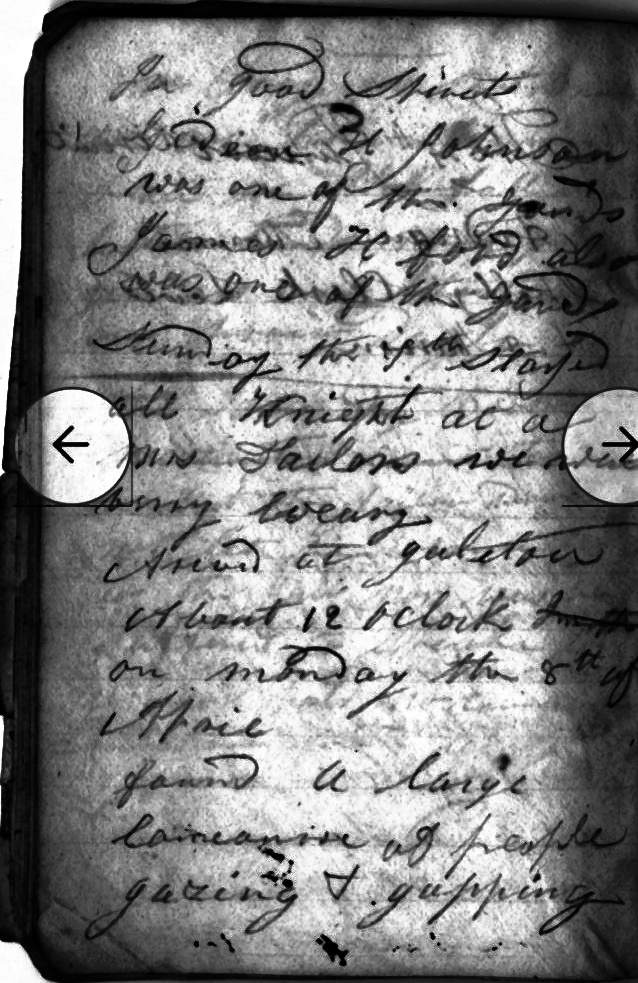 In good Spirits
Gideon H Johnson
was one of the gards
James H ford also
was one of the gards
Sunday the 7th stayed
all Knight at a
Mrs Tailors we
very weary
Arived at
About 12 oclock
on monday the 8th of
April
found a large
of people
gazing & gapping